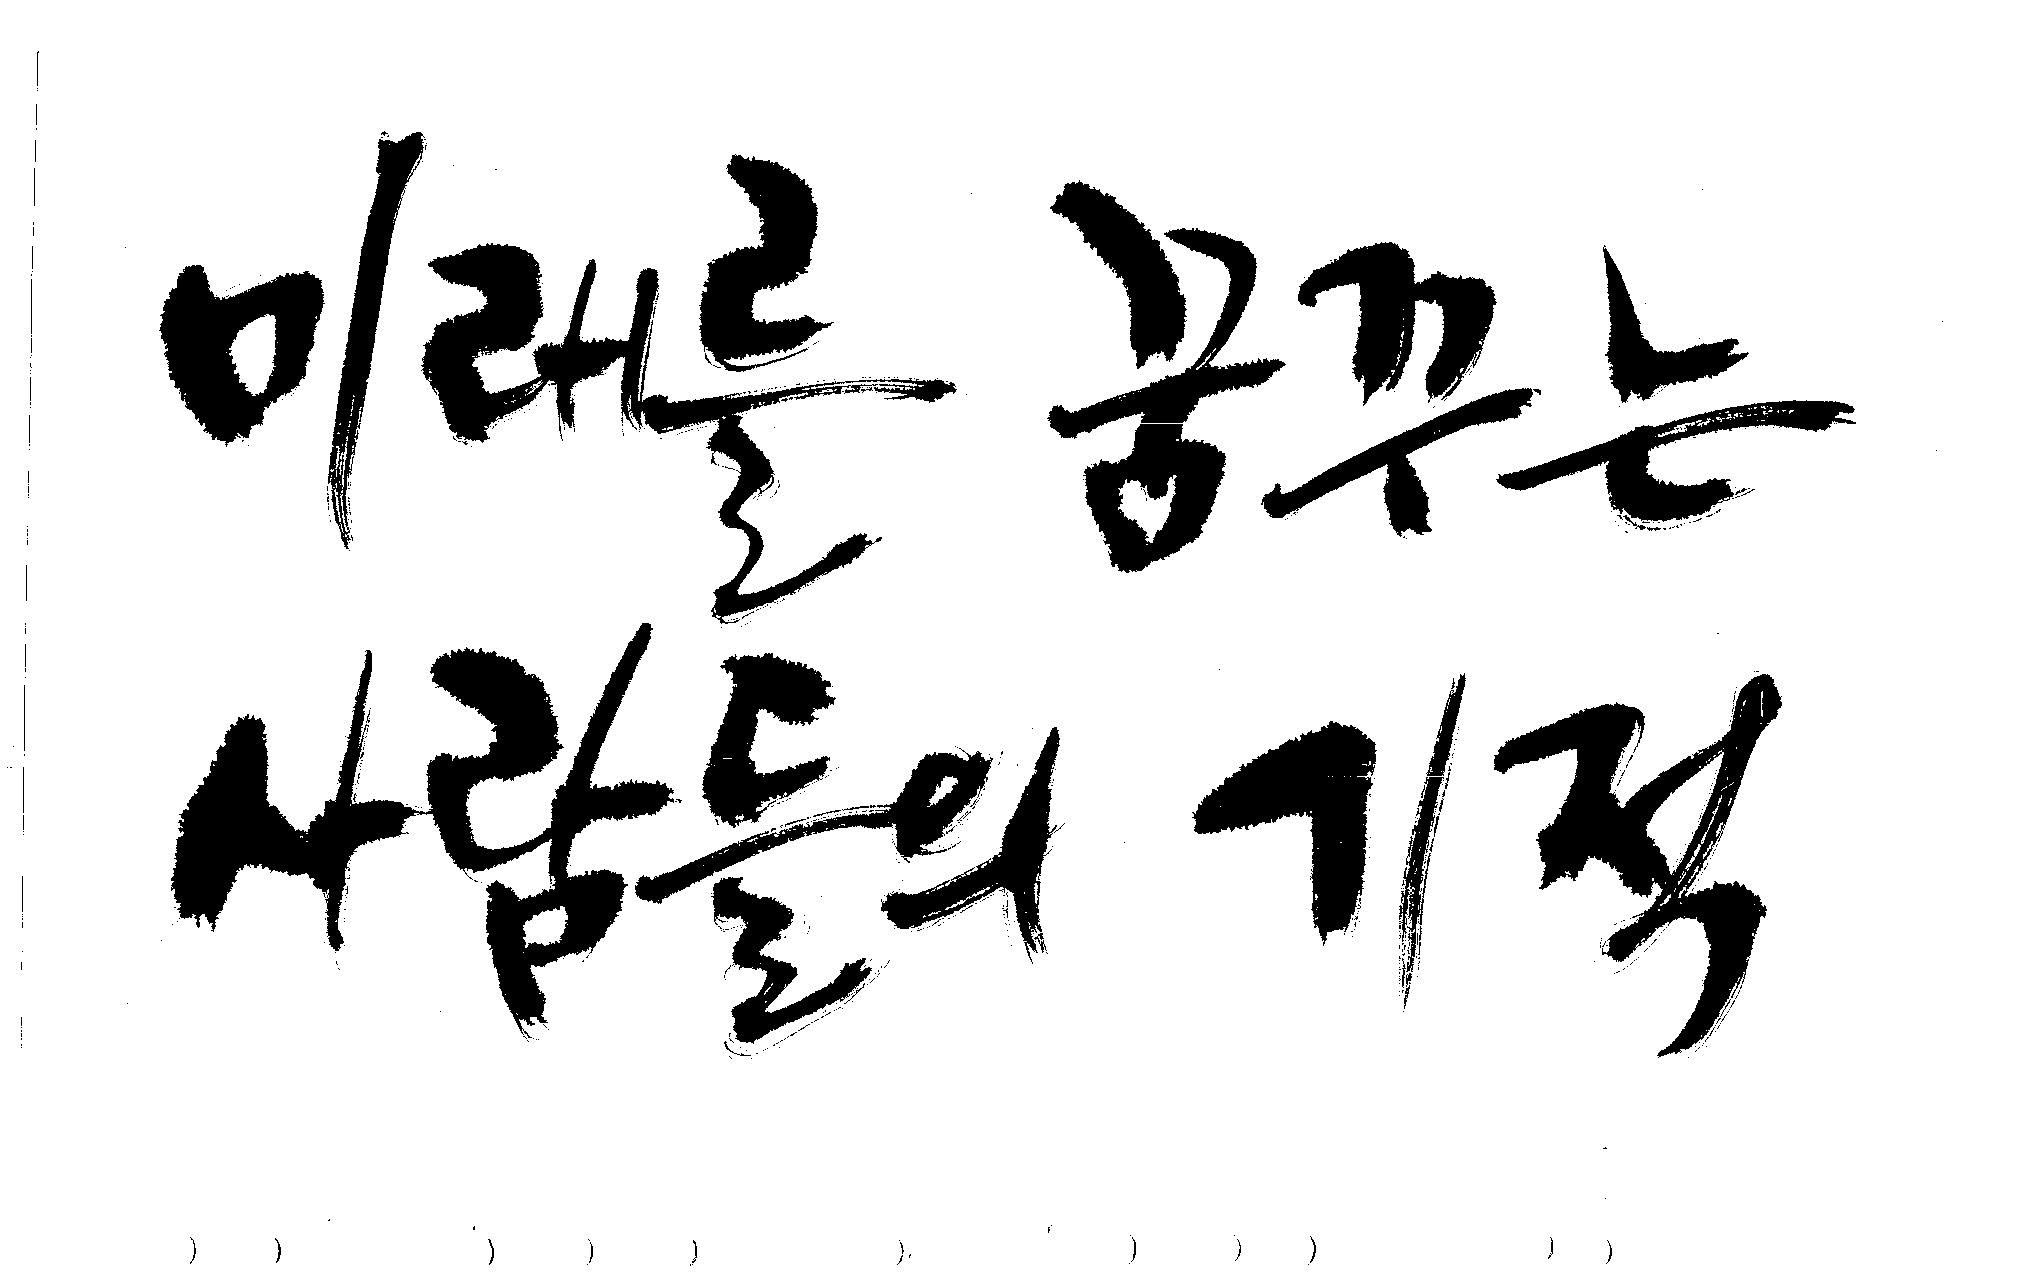 미래를 꿈꾸는
사람들의 기적